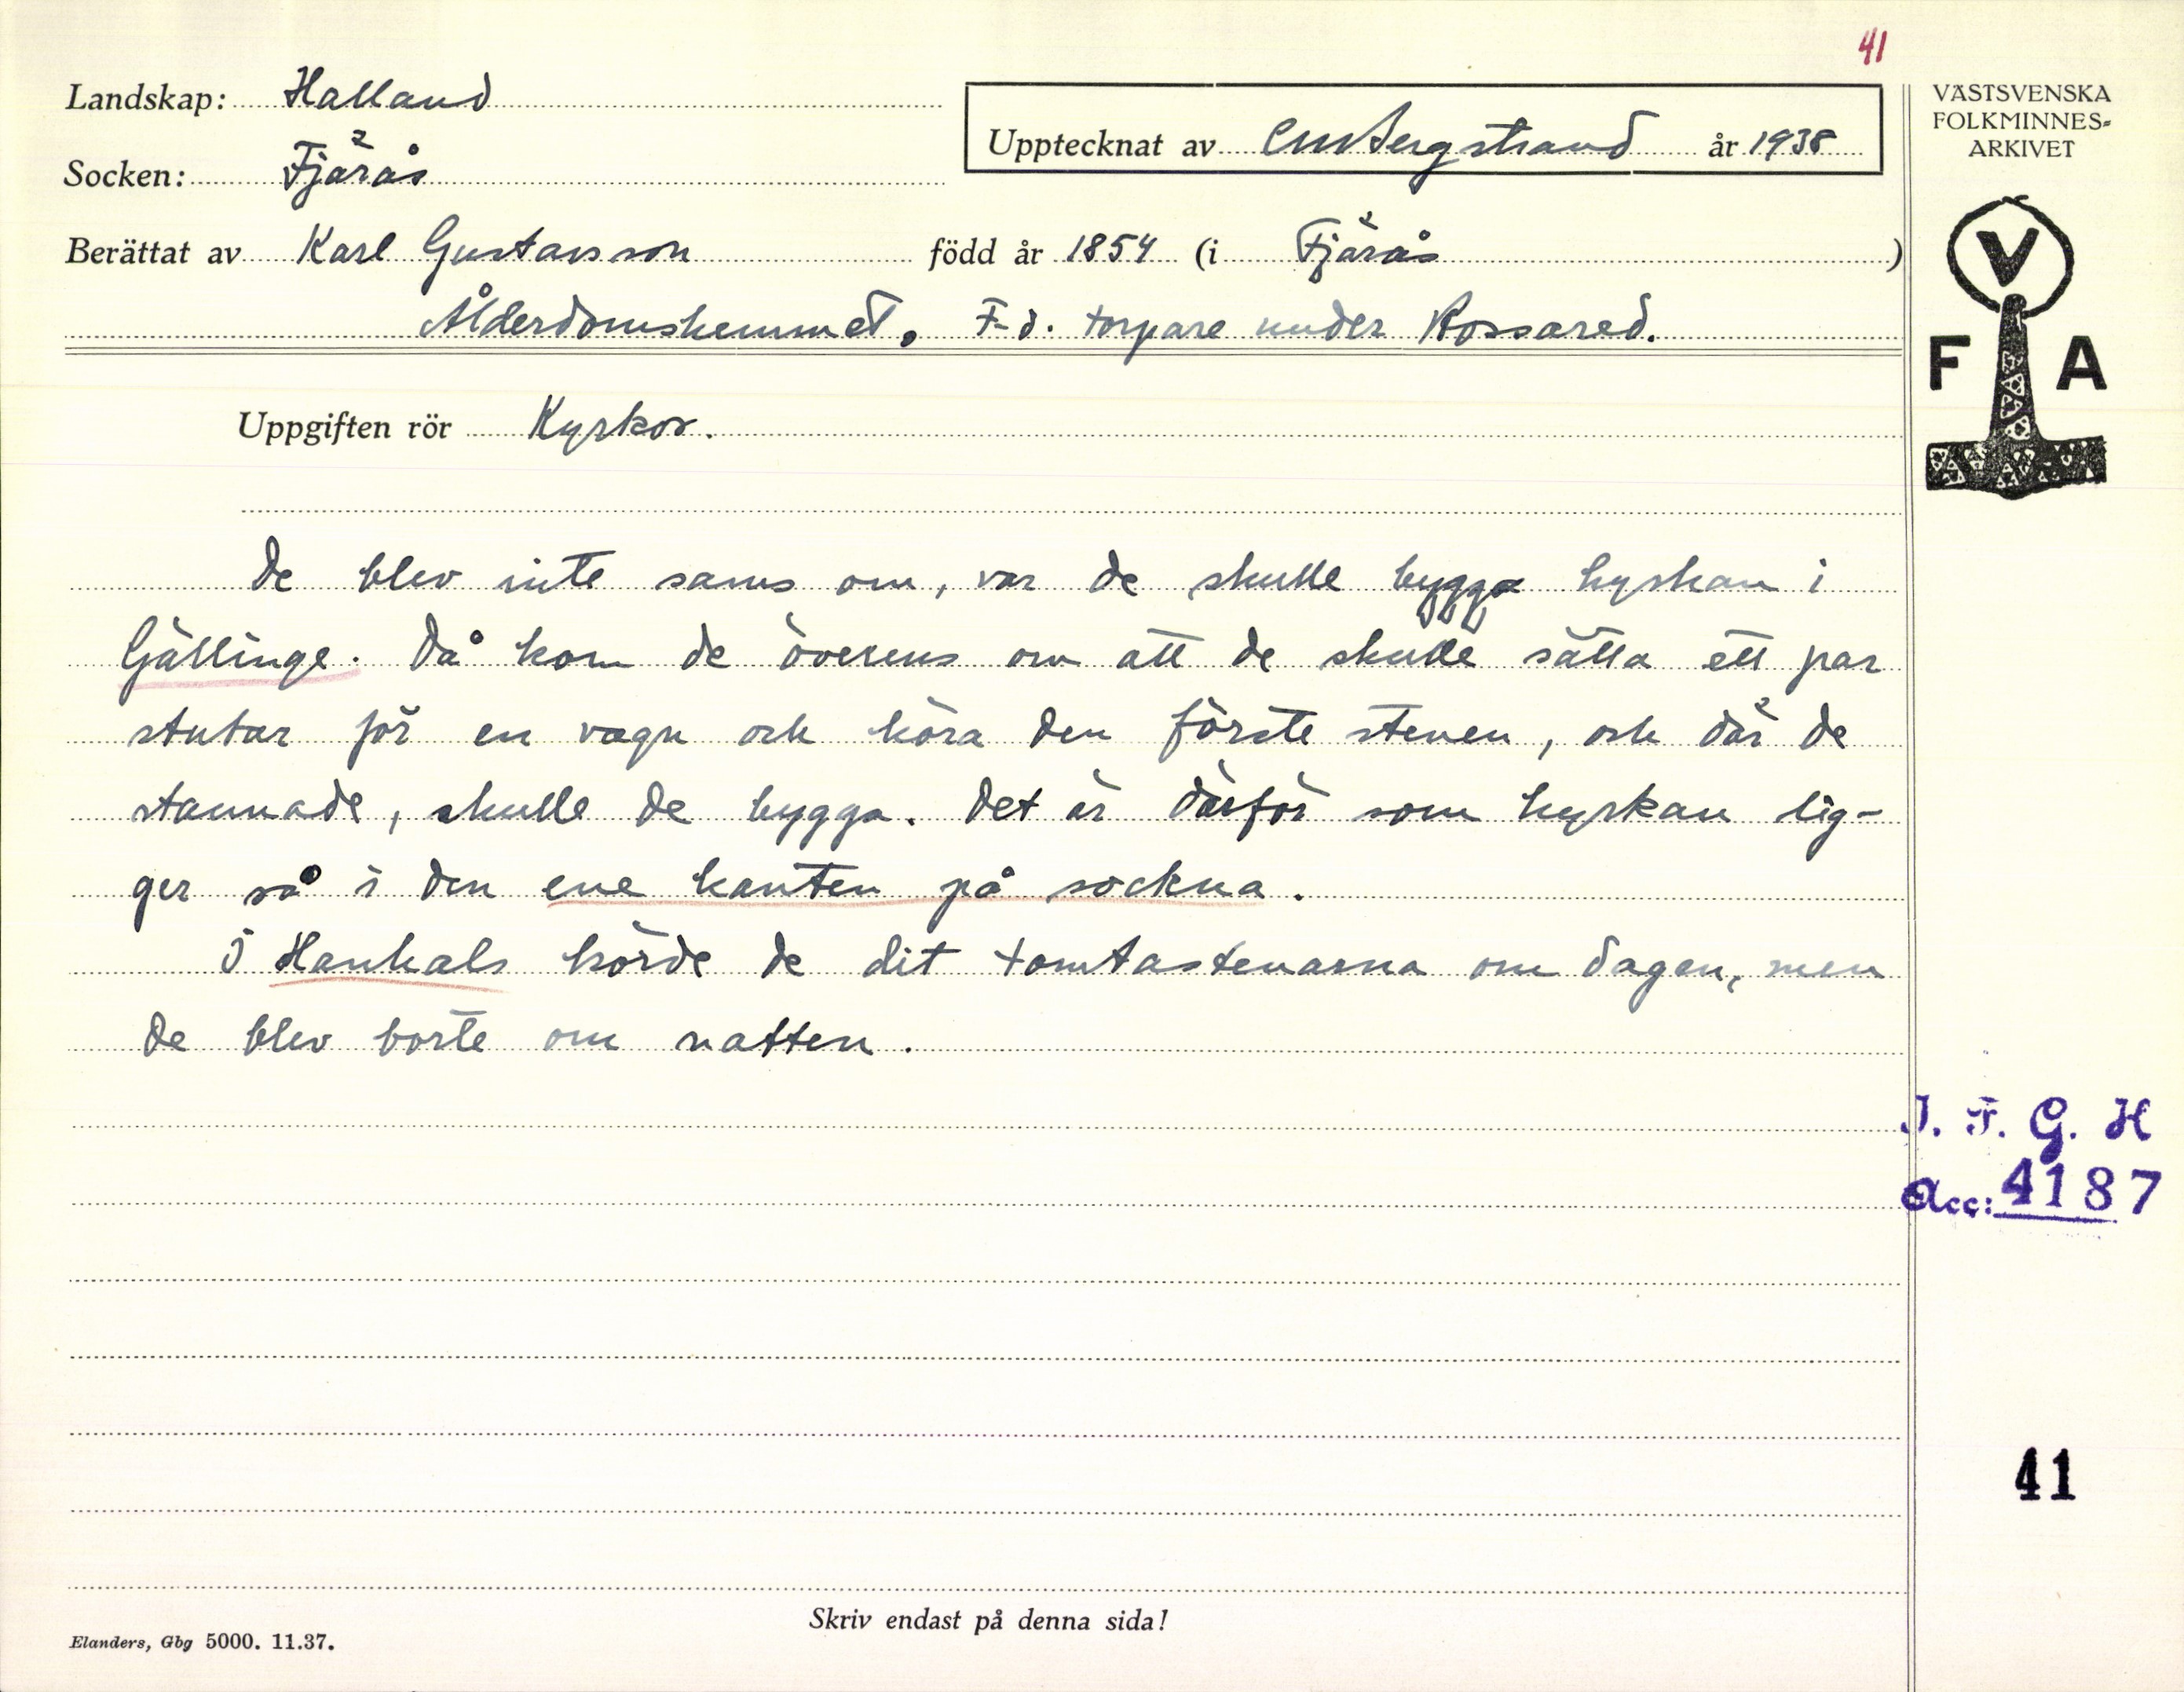 41
Landskap: Halland
Socken: Fjärås
Upptecknat av CMBergstrand år 1938
VÄSTSVENSKA
FOLKMINNES-
ARKIVET
V
F A
Berättat av Karl Gustavsson född år 1854 (i Fjärås)
Ålderdomshemmet. F.d. torpare under Rossared.
Uppgiften rör Kyrkor.
De blev inte sams om, var de skulle bygga kyrkan i
Gällinge. Då kom de överens om att de skulle sätta ett par
stutar för en vagn och köra den förste stenen, och där de
stannade, skulle de bygga. Det är därför som kyrkan lig-
ger så i den ene kanten på sockna.
I Hanhals körde de dit tomtastenarna om dagen, men
de blev borte om natten.
I. F. G. H
Acc: 4187
41
Skriv endast på denna sida!
Elanders, Gbg 5000. 11.37.